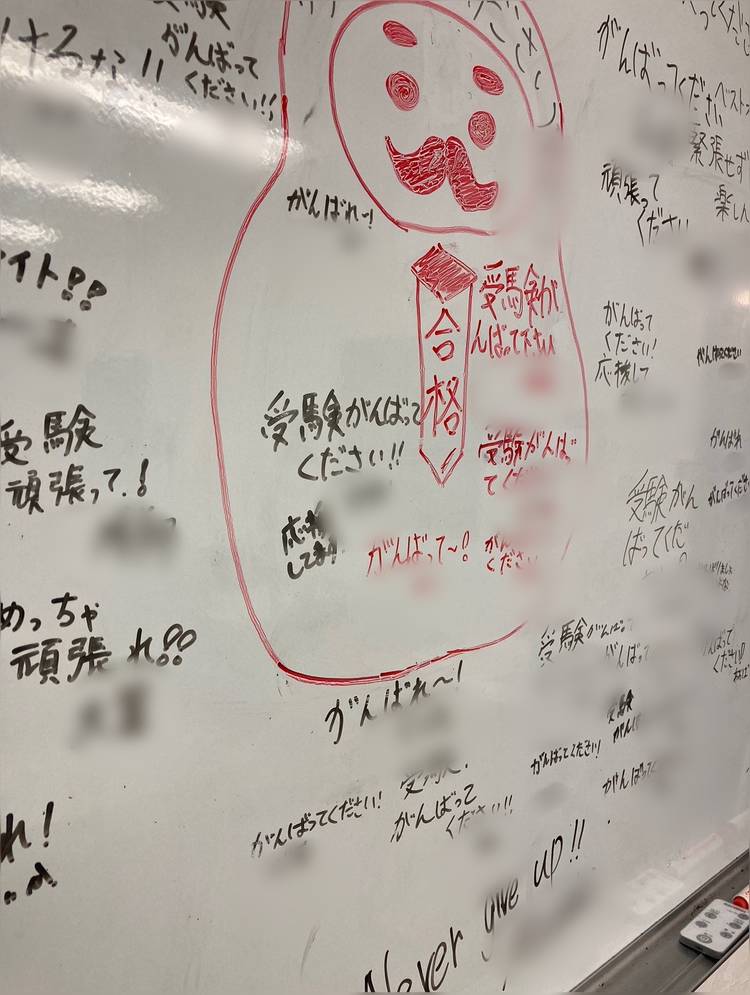 受験
がんばって
ください!!
けるな!!
がんばってください
ベスト
緊張せず
楽しん
頑張って
ください
がんばれー!
合格
受験が
んばって下さい
イト!!
がんばって
ください!
応援して
がんばってください
受験がんばって
ください!!
受験がんばっ
てくだ
がんばれ
受験
頑張って!
受験がん
ばってくだ
がんばってくださ
応援
しており
がんばって~!
がん
ください
めっちゃ
頑張れ!!
受験がんば
がんば
がんばって
くださ
がんばれ~!
受験
がん
がんばってください!
がんばって
がんばってください!
がんばって
ください!!
れ!
Never give up!!